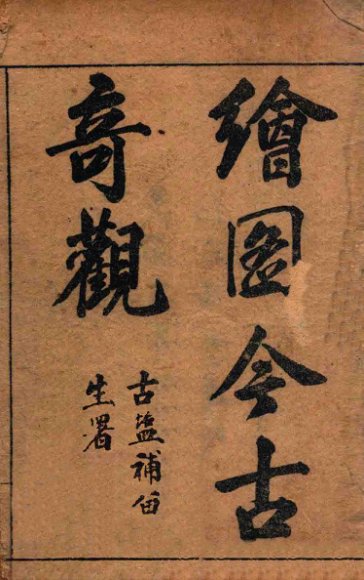 繪圖今古
奇觀
古鹽補留
生署